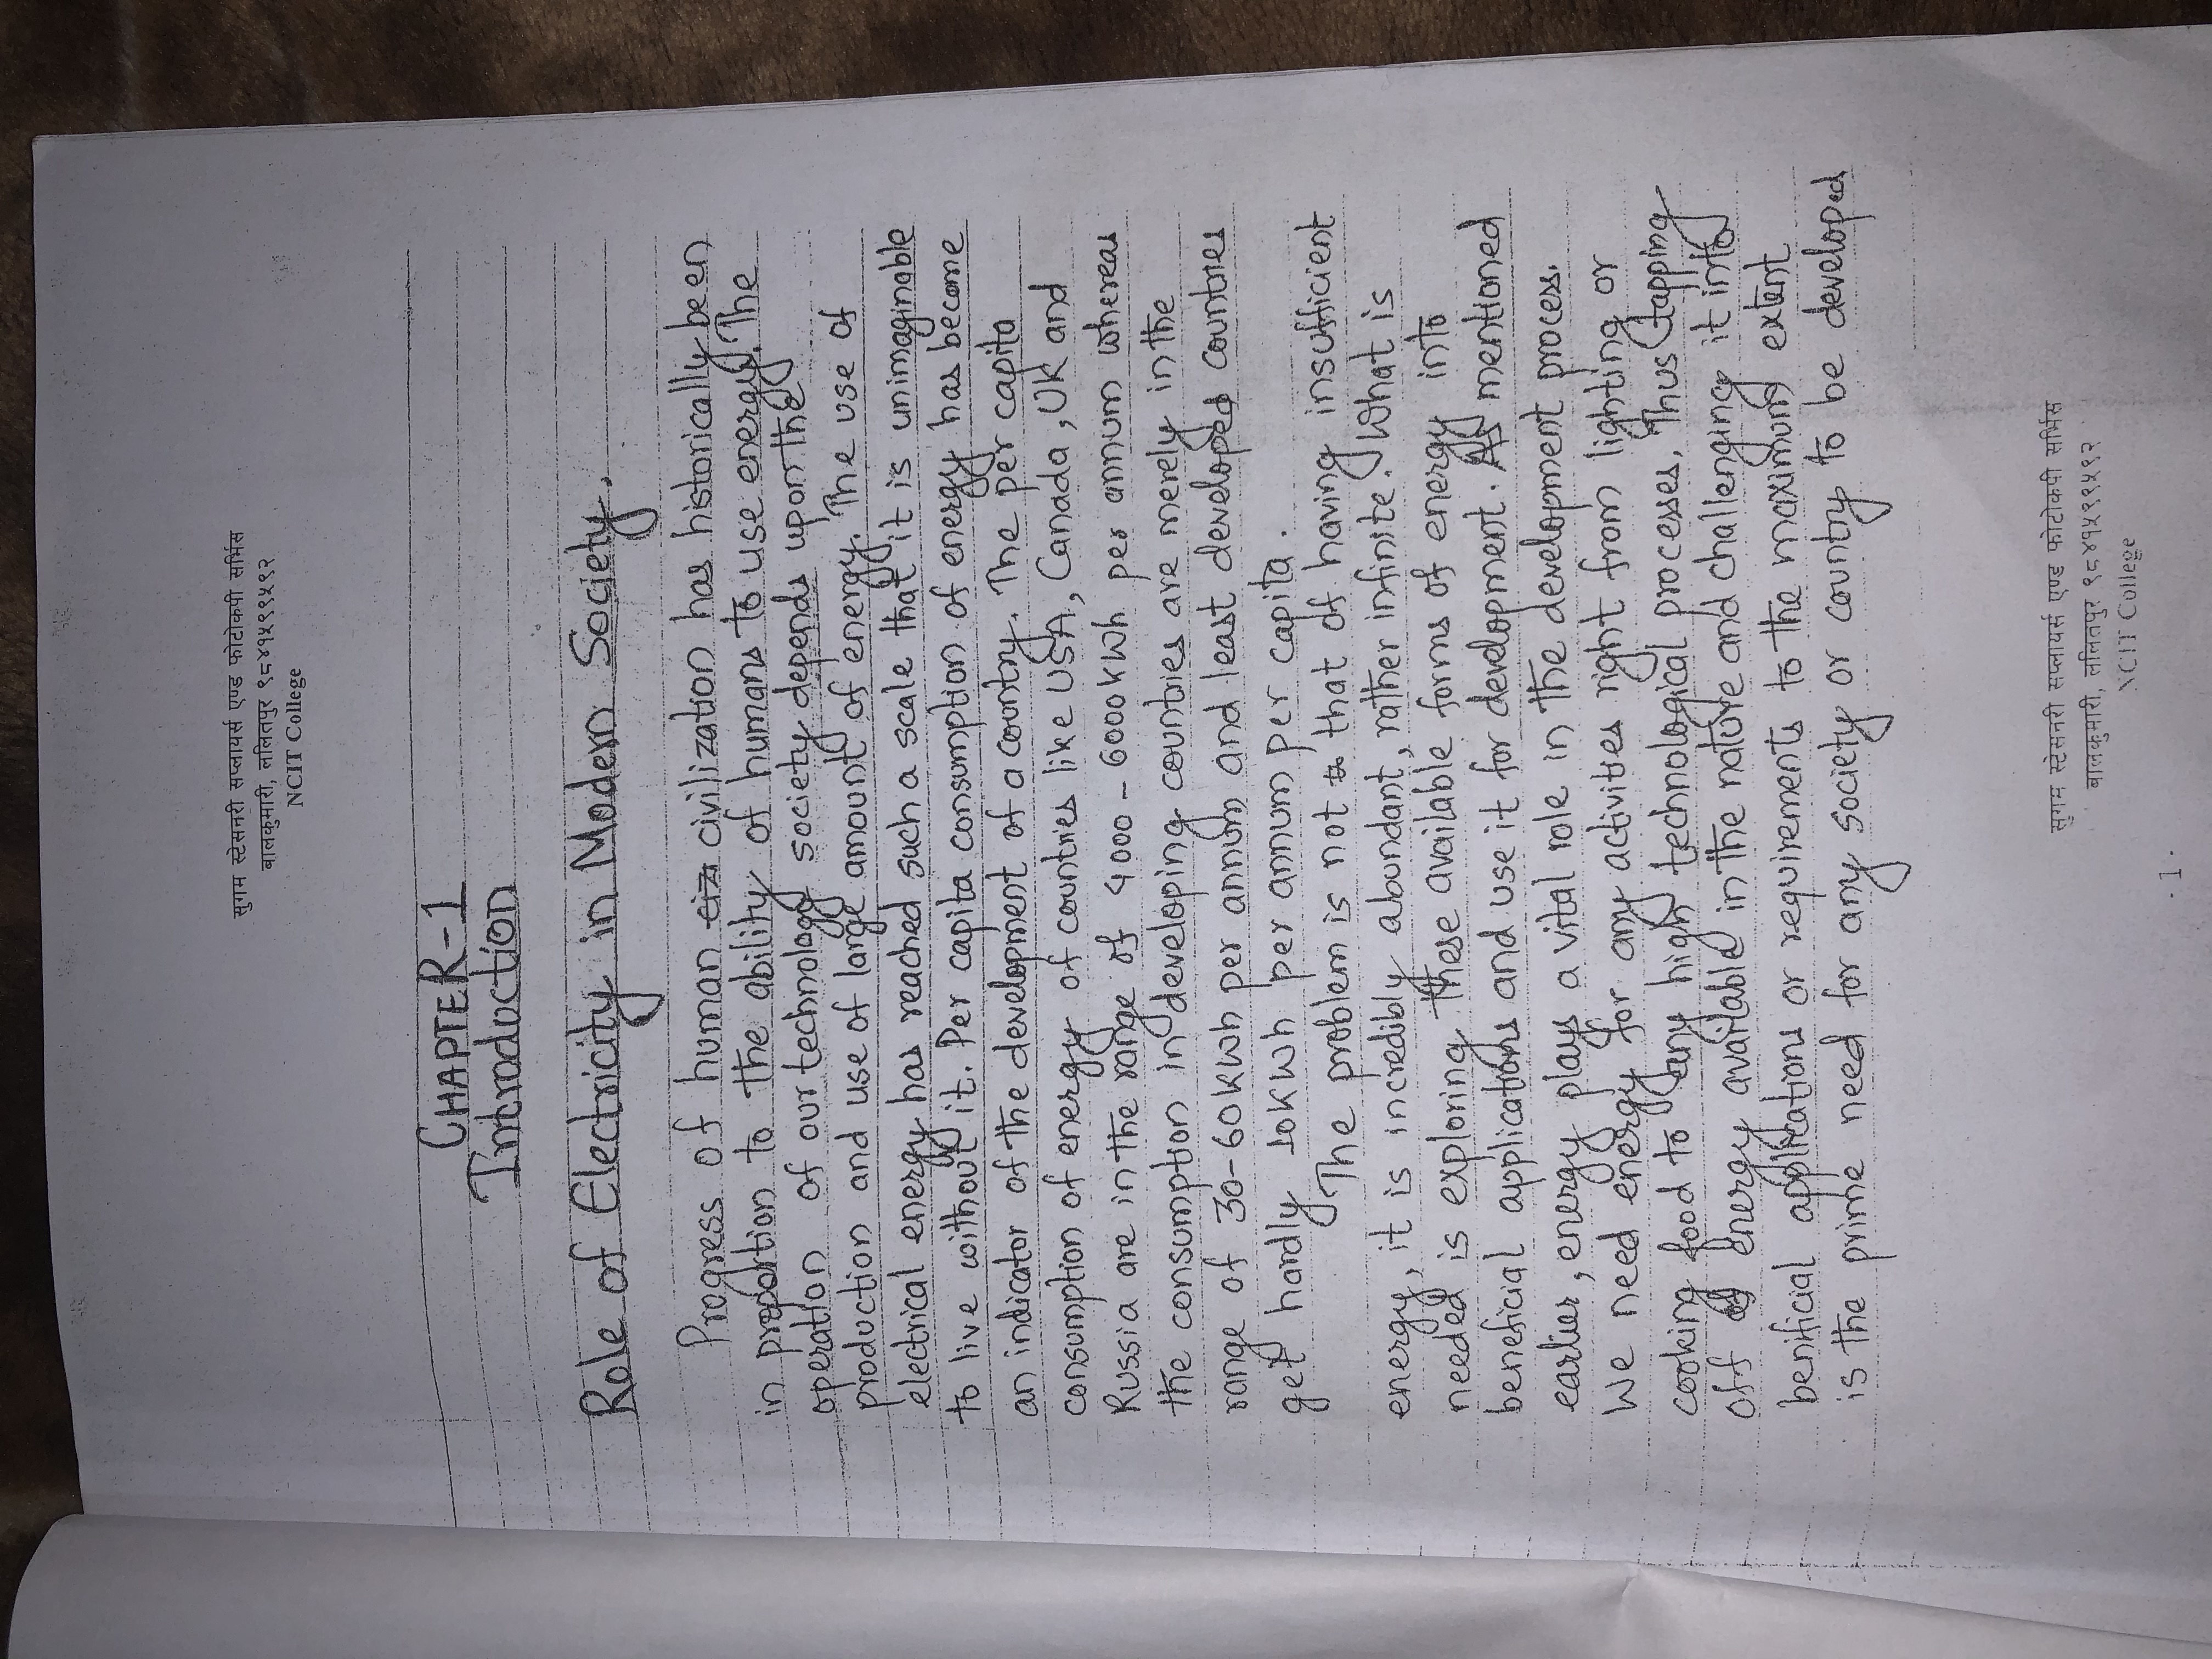 सुगम स्टेसनरी सप्लायर्स एण्ड फोटोकपी सर्भिस
बालकुमारी, ललितपुर ९८४१५९९५९२
NCIT College
CHAPTER-1
Introduction
Role of Electricity in Modern Society.
Progress of human civilization has historically been
in proportion to the ability of humans to use energy. The
operation of our technology society depends upon the
production and use of large amount of energy. The use of
electrical energy has reached such a scale that it is unimaginable
to live without it. Per capita consumption of energy has become
an indicator of the development of a country. The per capita
consumption of energy of countries like USA, Canada, UK and
Russia are in the range of 4000 - 6000 kWh per annum whereas
the consumption in developing countries are merely in the
range of 30-60 kWh per annum and least developed countries
get hardly 10 kWh per annum per capita.
The problem is not that of having insufficient
energy, it is incredibly abundant, rather infinite. What is
needed is exploring these available forms of energy into
beneficial applications and use it for development. As mentioned
earlier, energy plays a vital role in the development process.
We need energy for any activities right from lighting or
cooking food to any high technological processes. Thus tapping
off of energy available in the nature and challenging it into
benificial applications or requirements to the maximum extent
is the prime need for any society or country to be developed
सुगम स्टेसनरी सप्लायर्स एण्ड फोटोकपी सर्भिस
बालकुमारी, ललितपुर ९८४१५९९५९२
NCIT College
· 1 ·